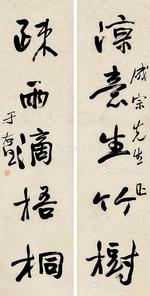 涼意生竹樹
成宗先生正
疎雨滴梧桐
于右任